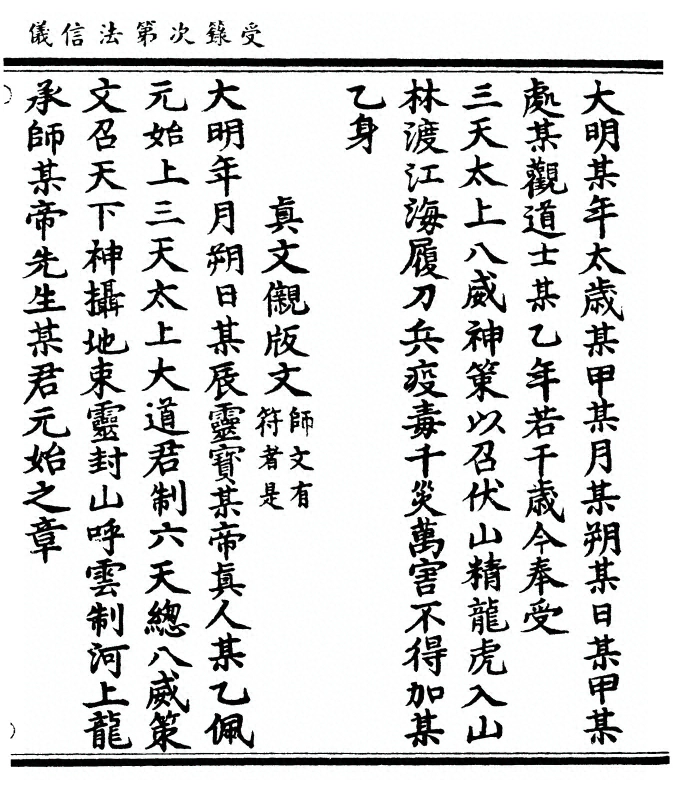 受籙次第法信儀
大明某年太歲某甲某月某朔某日某甲某
處某觀道士某乙年若干歲今奉受
三天太上八威神策以召伏山精龍虎入山
林渡江海履刀兵疫毒千災萬害不得加某
乙身
真文儭版文師文有符者是
大明年月朔日某辰靈寶某帝真人某乙佩
元始上三天太上大道君制六天總八威策
文召天下神攝地束靈封山呼雲制河上龍
承師某帝先生某君元始之章